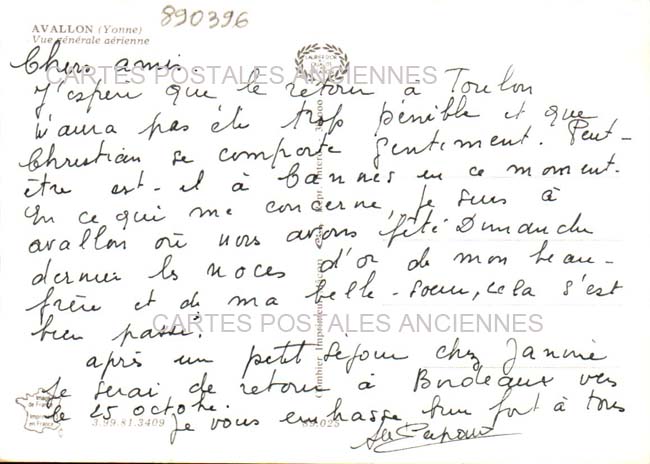 890396
AVALLON (Yonne)
Vue générale aérienne
Chers amis.
CARTES POSTALES ANCIENNES
J'espère que le retour à Toulon
n'aura pas été trop pénible et que
Christian se comporte gentiment. Peut-
être est-il à Cannes en ce moment.
En ce qui me concerne, je suis à
avallon où nous avons fêté Dimanche
dernier les noces d'or de mon beau-
frère et de ma belle-soeur, cela s'est
bien passé.
CARTES POSTALES ANCIENNES
après un petit séjour chez Janine
je serai de retour à Bordeaux vers
le 25 octobre.
Je vous embrasse bien fort à tous
Image de France
Imprimé en France
3.99.81.3409
89.025
Combier Imprimeur Mâcon